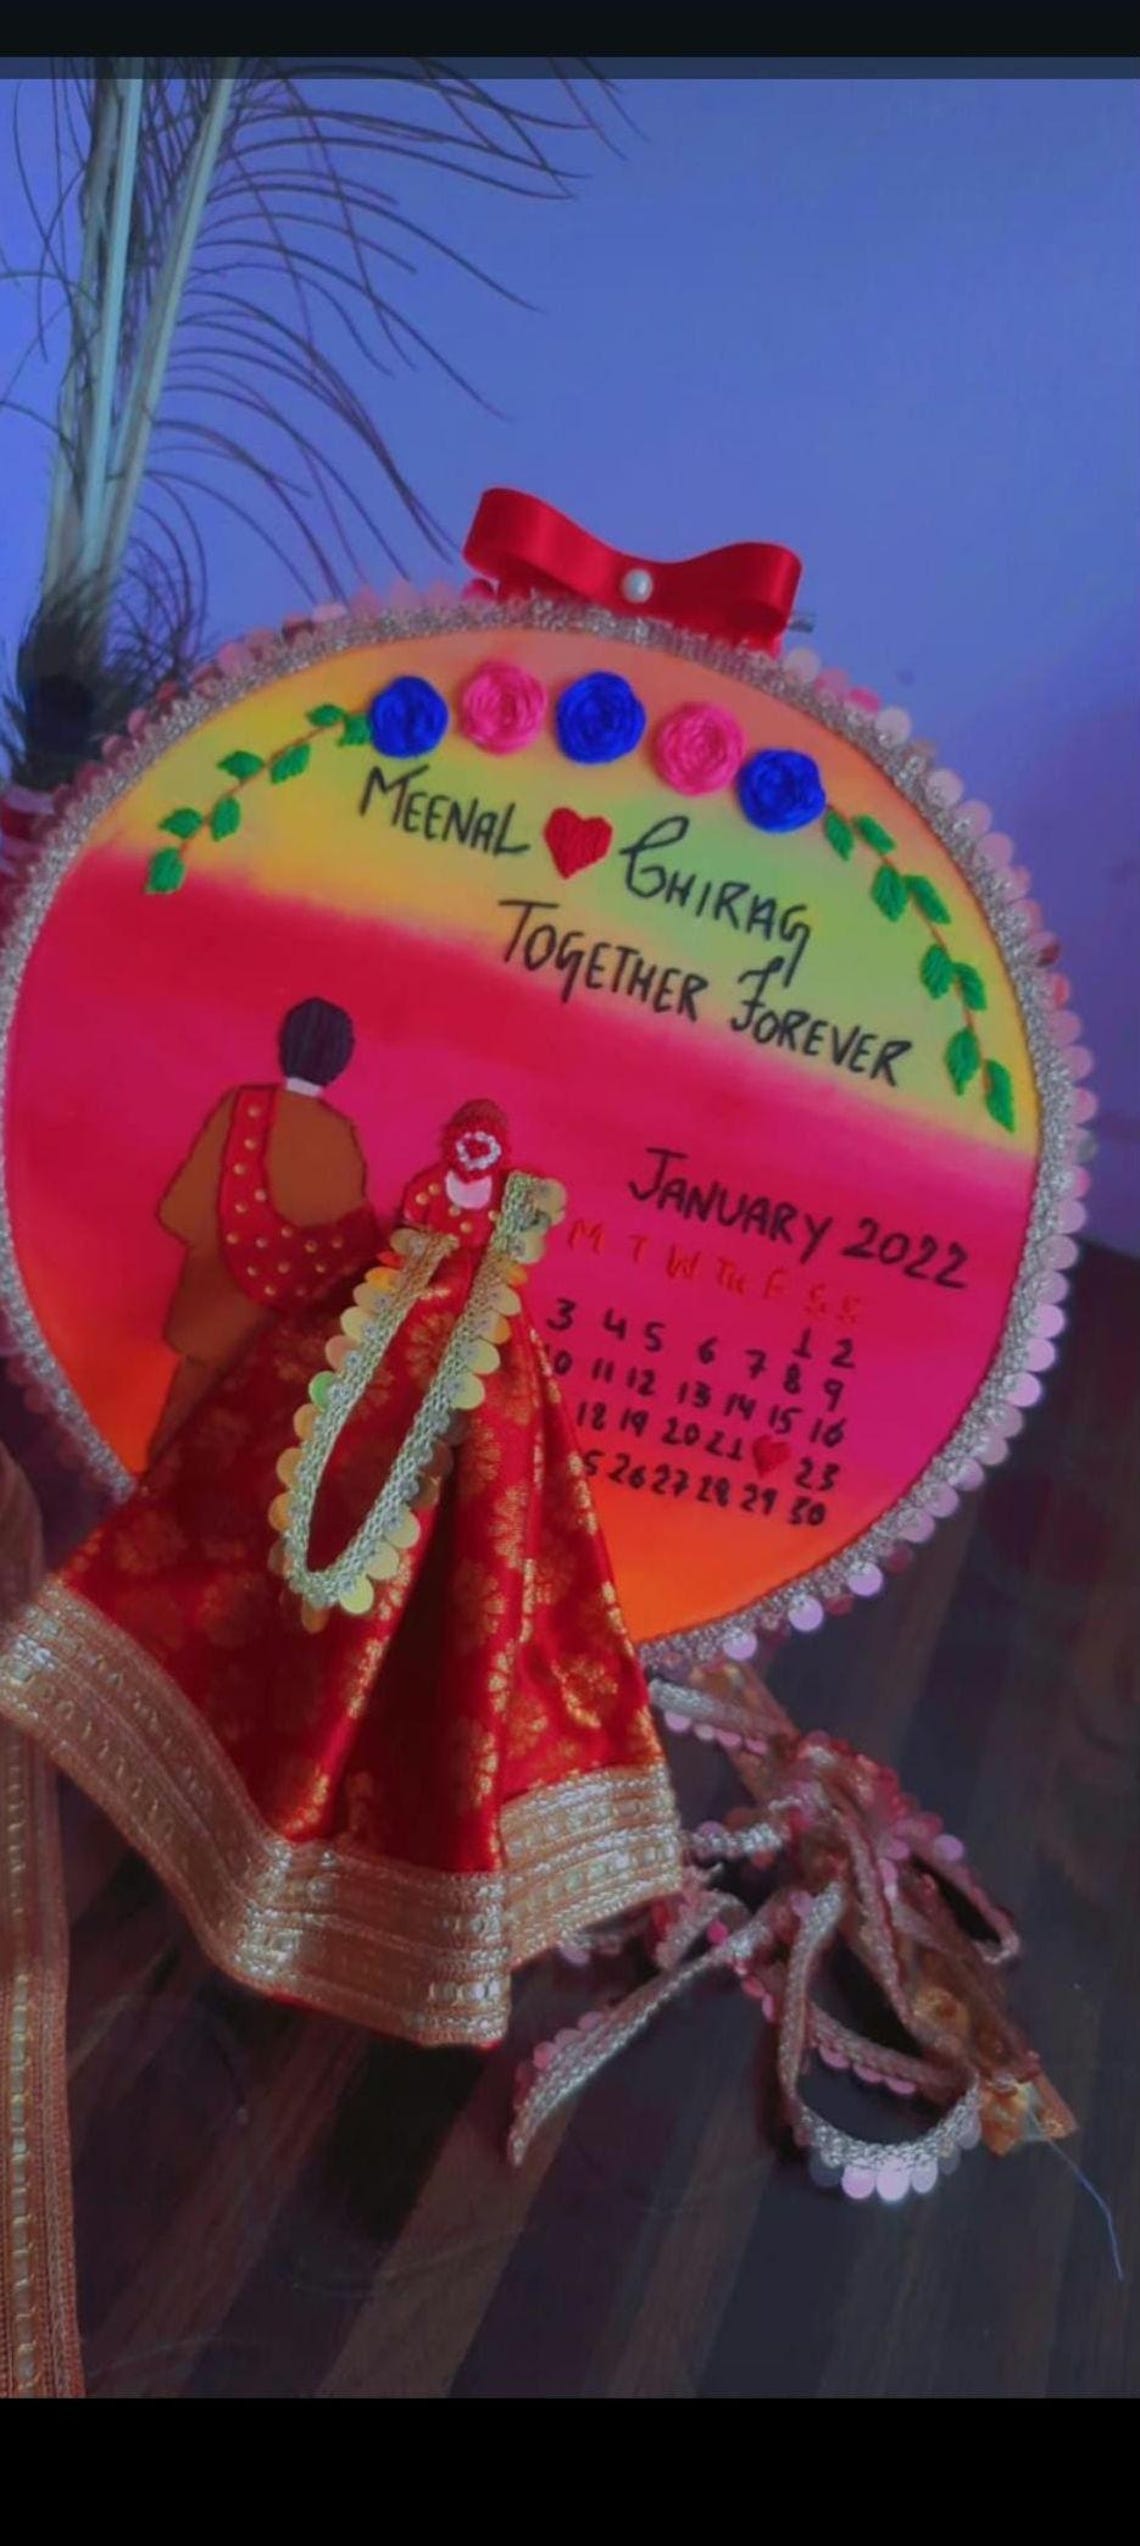 MEENAL CHIRAG
TOGETHER FOREVER
JANUARY 2022
M T W TH F S S
1 2
3 4 5 6 7 8 9
10 11 12 13 14 15 16
18 19 20 21 23
26 27 28 29 30